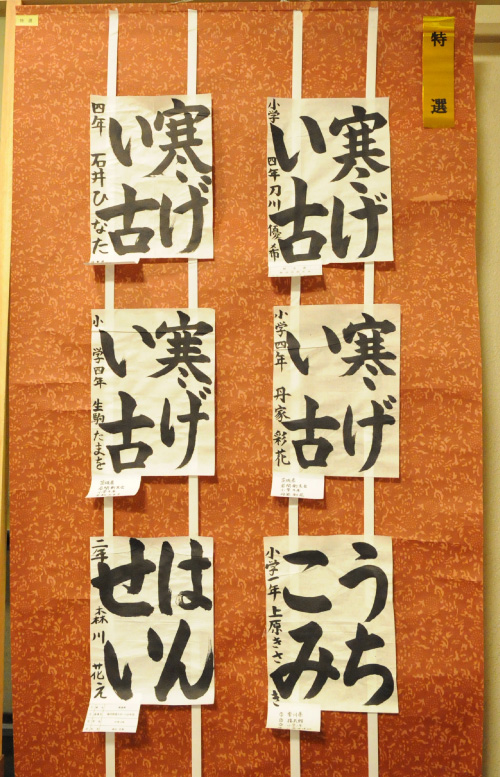 特選
寒げ
い古
小学四年刀川優希
寒げ
い古
四年 石井ひなた
寒げ
い古
小学四年 丹家彩花
寒げ
い古
小学四年 生駒たまを
うち
こみ
小学一年上原きさき
はん
せい
二年 森川花え